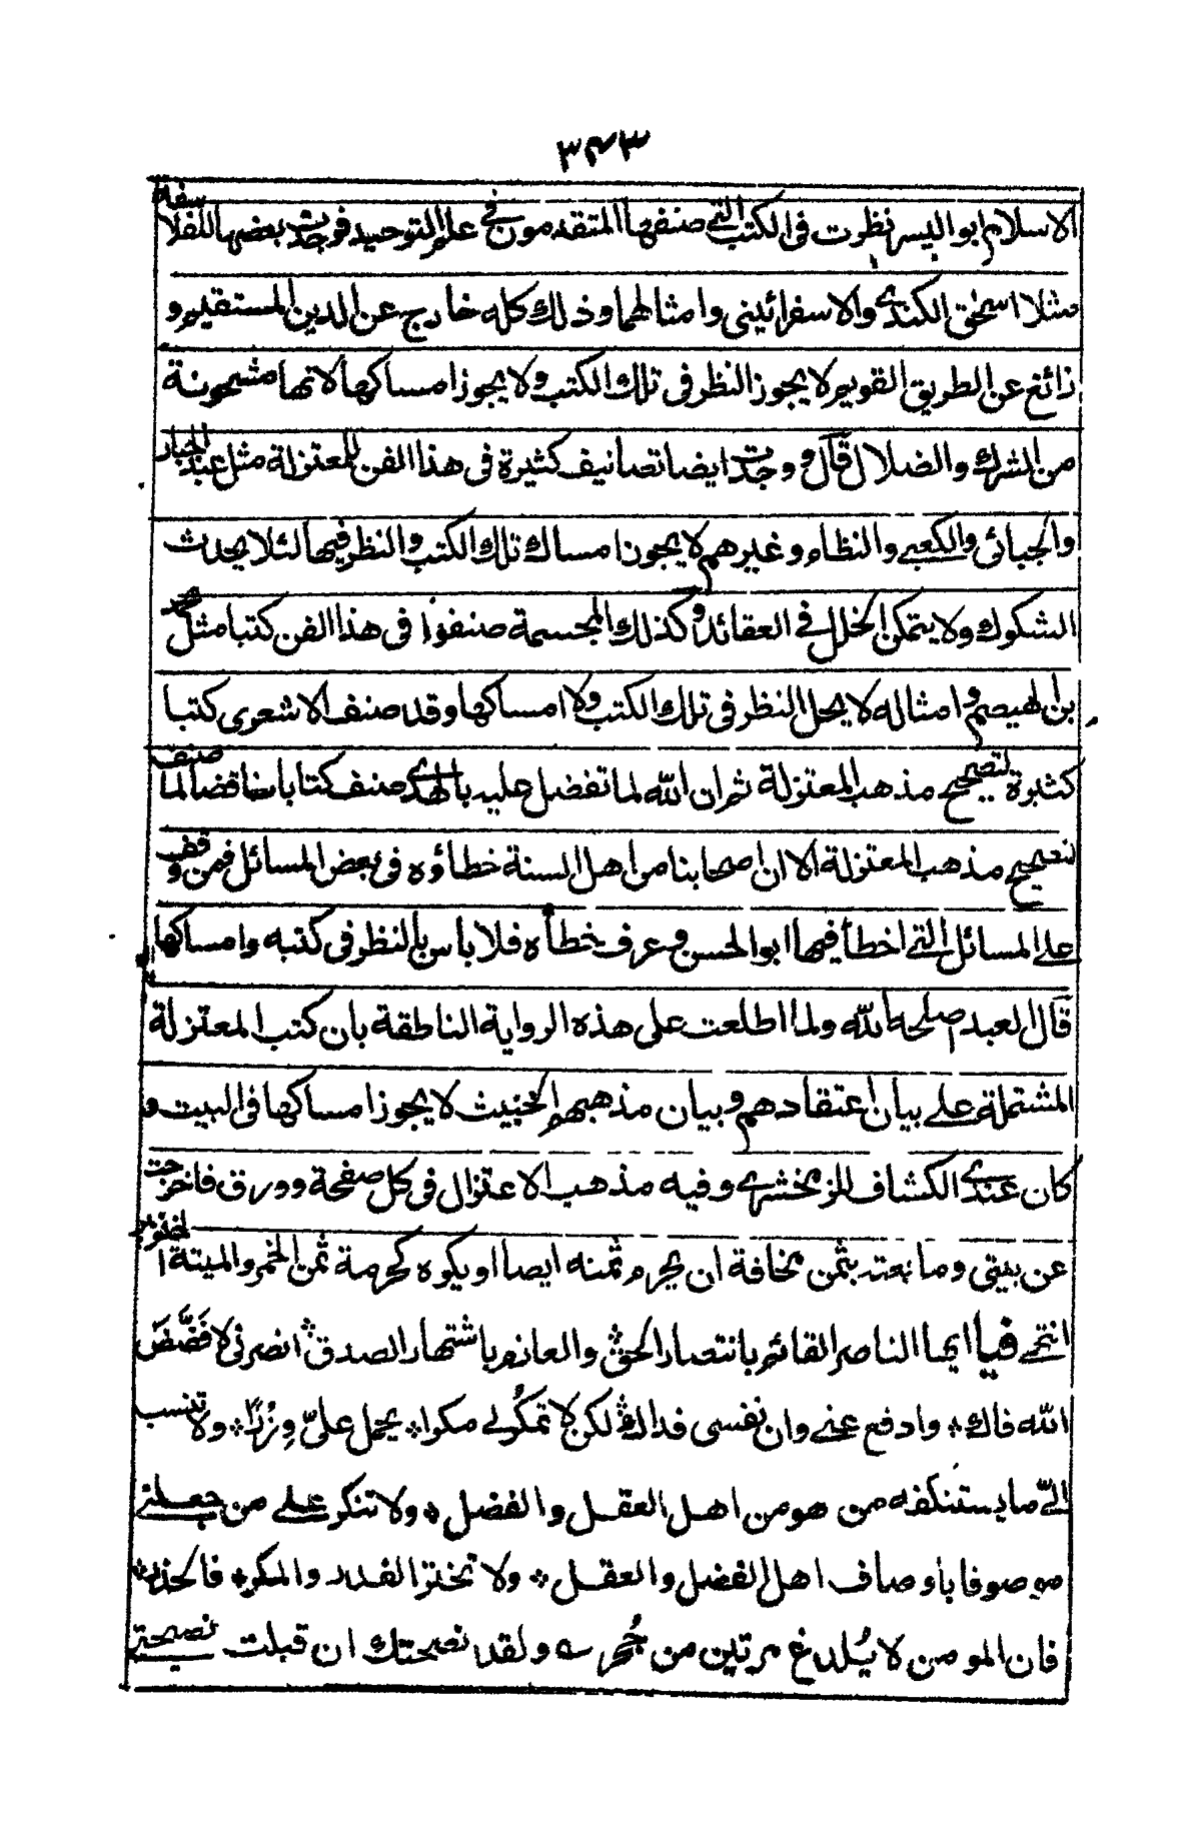 ٣٤٣
الاسلام ابو اليسر نظرت فى الكتب التي صنفها المتقدمون في علم التوحيد فوجدت بعضها للفلاسفة
مثل اسحٰق الكندي والاسفرائينى وامثالهما وذلك كله خارج عن الدين المستقيم و
زائغ عن الطريق القويم لا يجوز النظر فى تلك الكتب ولا يجوز امساكها لانها مشحونة
من الشرك والضلال قال ووجدت ايضا تصانيف كثيرة فى هذا الفن للمعتزلة مثل عبد الجبار
والجبائى والكعبي والنظام وغيرهم لا يجوز امساك تلك الكتب والنظر فيها لئلا يحدث
الشكوك ولا يتمكن الخلل في العقائد وكذلك المجسمة صنفوا فى هذا الفن كتبا مثل محمد
بن الهيصم وامثاله لا يحل النظر فى تلك الكتب ولا امساكها وقد صنف الاشعرى كتبا
كثيرة لتصحيح مذهب المعتزلة ثم ان الله لما تفضل عليه بالهدى صنف كتابا مناقضا لما صنف
لتصحيح مذهب المعتزلة الا ان اصحابنا من اهل السنة خطاؤه فى بعض المسائل فمن وقف
على المسائل التي اخطأ فيها ابو الحسن وعرف خطأه فلا باس بالنظر فى كتبه وامساكها
قال العبد اصلحه الله ولما اطلعت على هذه الرواية الناطقة بان كتب المعتزلة
المشتملة على بيان اعتقادهم وبيان مذهبهم الخبيث لا يجوز امساكها فى البيت و
كان عندي الكشاف للزمخشرى وفيه مذهب الاعتزال فى كل صفحة وورق فاخرجت
عن بيتى وما بعته بثمن مخافة ان يحرم ثمنه ايضا او يكره كحرمة ثمن الخمر والميتة
انتهى فيا ايها الناصر القائم بانتصار الحق والعازم باشتهار الصدق انصرنى لا فضّض
الله فاك وادفع عنى وان نفسى فداك لكن لا تمكر لى مكرا يحمل عليّ وِزرًا ولا تنسب
اليّ ما يستنكفه من هو من اهل العقل والفضل ولا تنكر على من جعلنى
موصوفا باوصاف اهل الفضل والعقل ولا تختر الغدر والمكر فالحذر
فان المومن لا يُلدغ مرتين من جُحر ولقد نصحتك ان قبلت نصيحتى